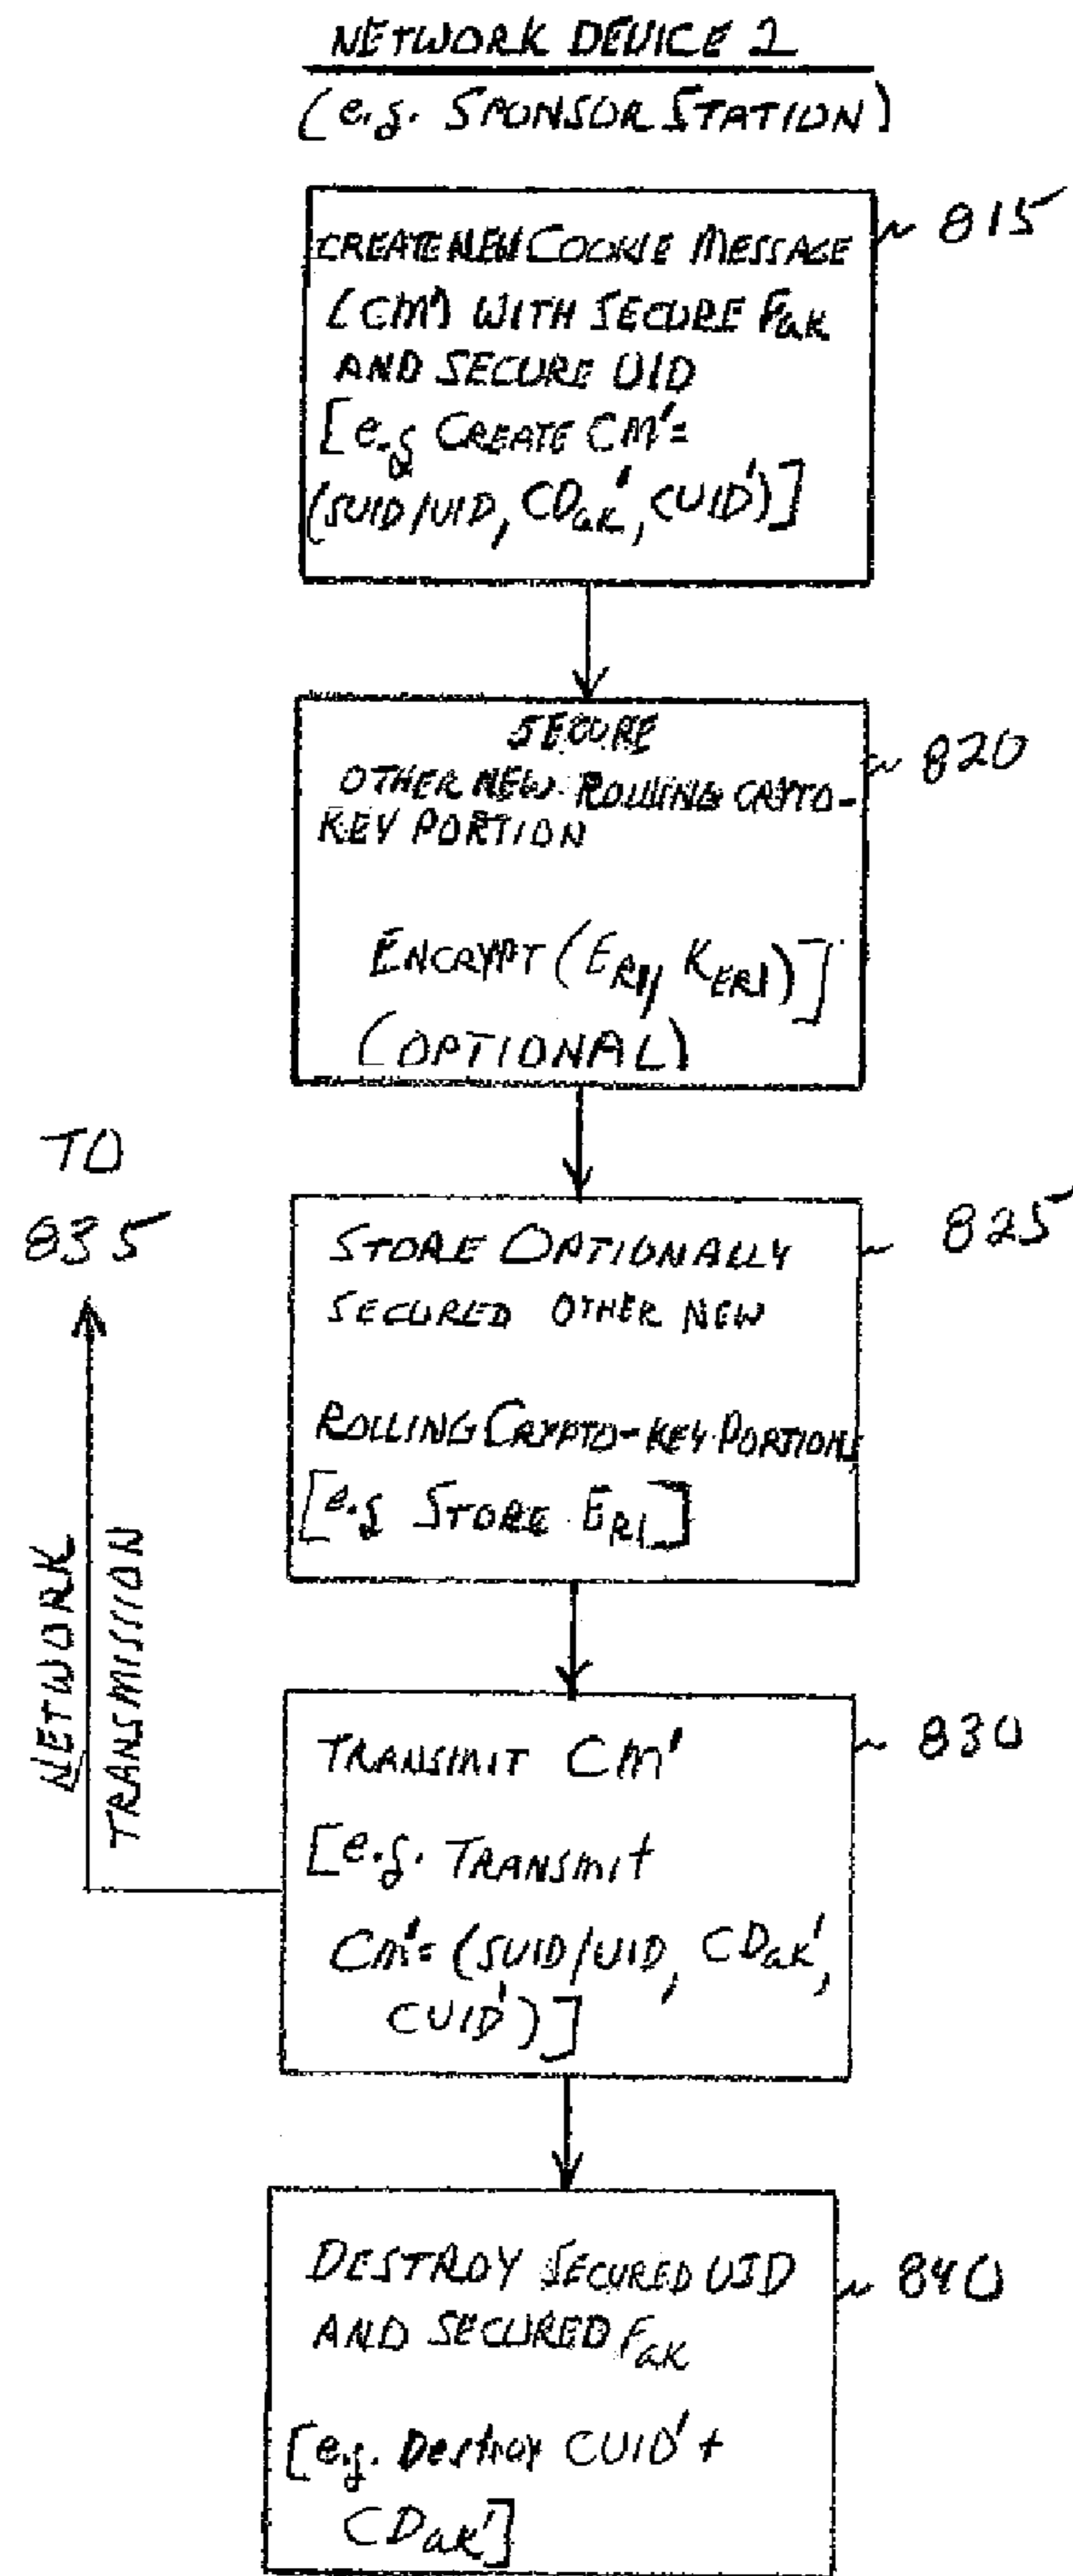 NETWORK DEVICE 2
(e.g. SPONSOR STATION)
815
CREATE NEW COOKIE MESSAGE
(CM') WITH SECURE Fak
AND SECURE UID
[e.g CREATE CM'=
(SUID/UID, CDak', CUID')]
SECURE
820
OTHER NEW ROLLING CRYTO-
KEY PORTION
ENCRYPT (ER1, KER1)]
(OPTIONAL)
TO
835
STORE OPTIONALLY
825
SECURED OTHER NEW
ROLLING CRYPTO-KEY PORTIONS
[e.g STORE ER1]
NETWORK
TRANSMISSION
TRANSMIT CM'
830
[e.g. TRANSMIT
CM'= (SUID/UID, CDak',
CUID')]
DESTROY SECURED UID
840
AND SECURED Fak
[e.g. Destroy CUID' +
CDak']